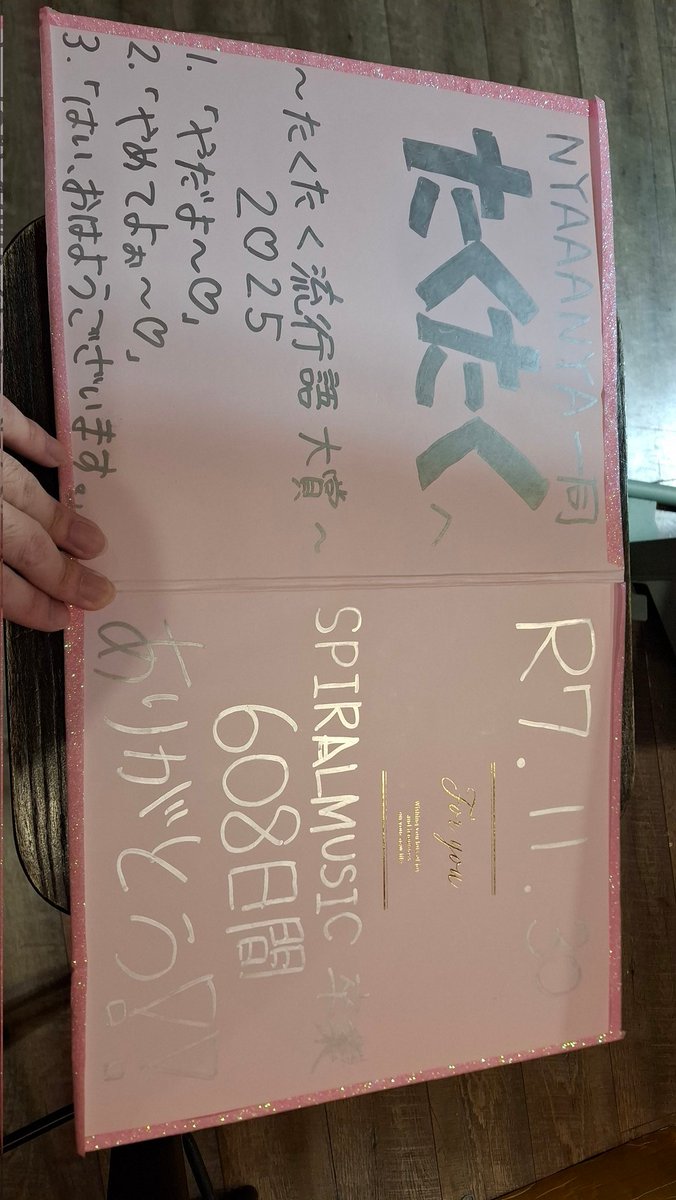 NYAAANYA一同
たくたくへ
〜たくたく流行語大賞〜
2025
1.「やだよ〜♡」
2.「やめてよぉ〜♡」
3.「はい、おはようございます。」
R7.11.30
For you
SPIRALMUSIC 卒業
608日間
ありがとう!!